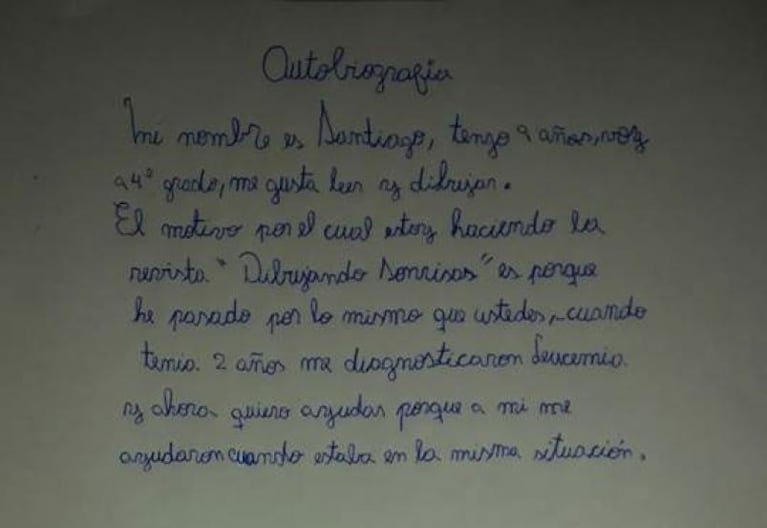 Autobiografía
mi nombre es Santiago, tengo 9 años, voy
a 4° grado, me gusta leer y dibujar.
El motivo por el cual estoy haciendo la
revista "Dibujando Sonrisas" es porque
he pasado por lo mismo que ustedes, cuando
tenia 2 años me diagnosticaron Leucemia
y ahora quiero ayudar porque a mi me
ayudaron cuando estaba en la misma situación.